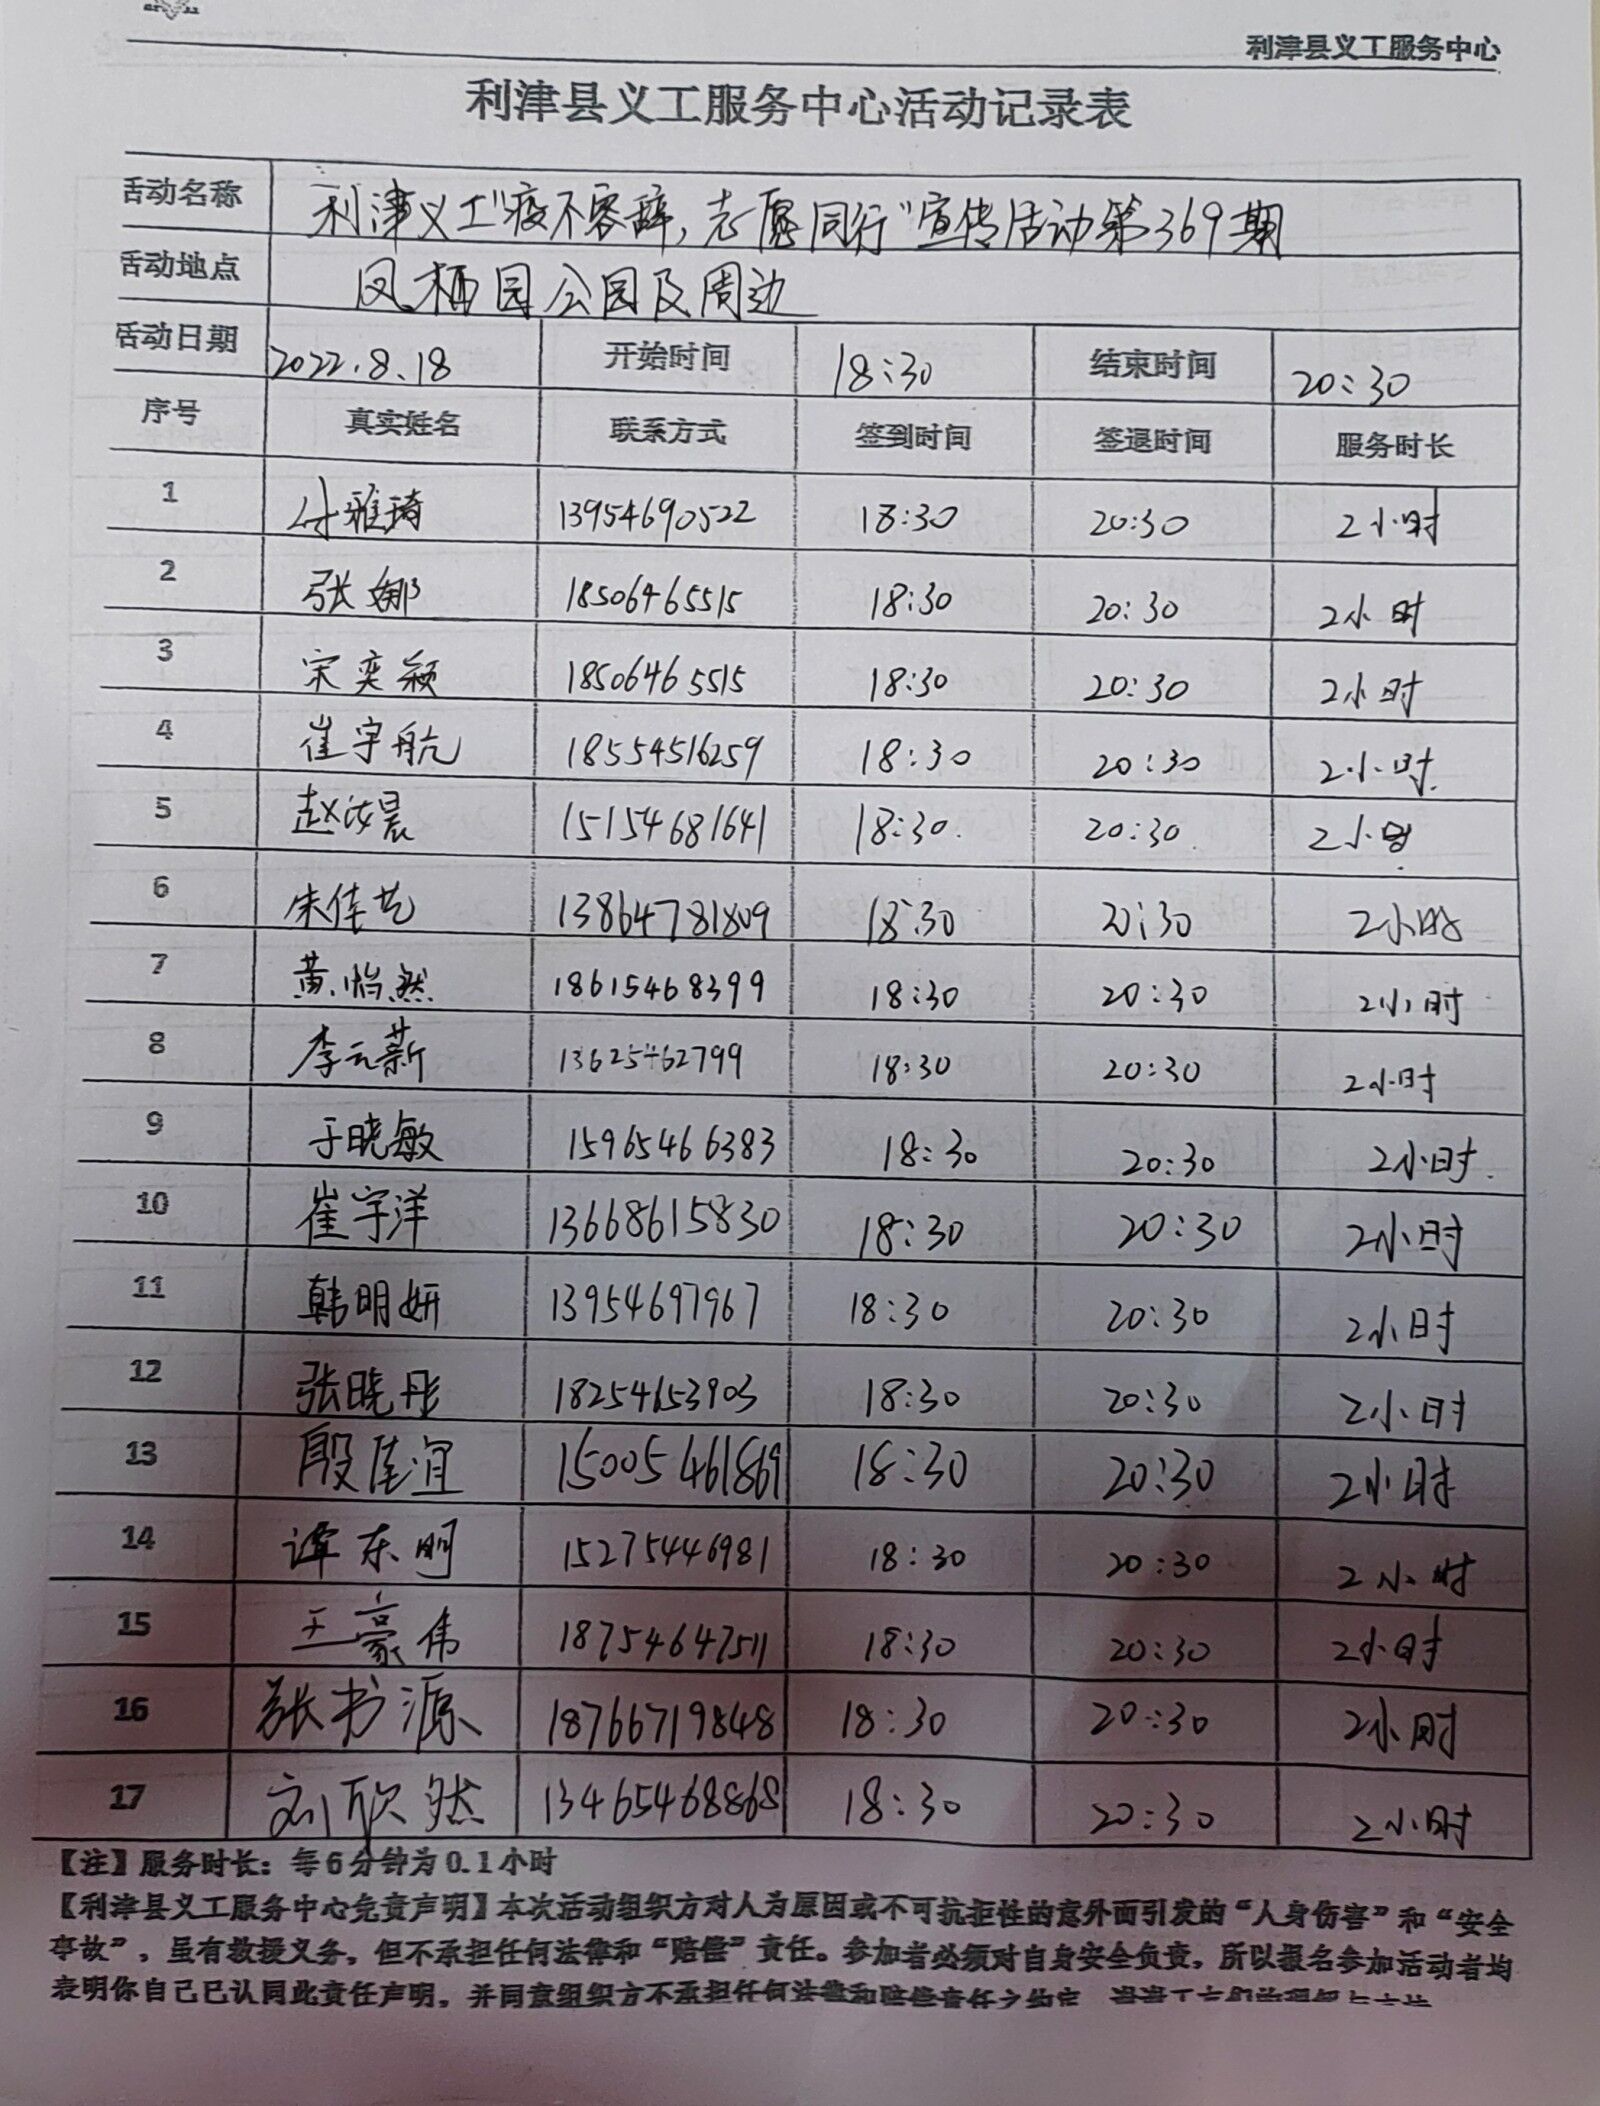 利津县义工服务中心
利津县义工服务中心活动记录表
活动名称 利津义工"疫不容辞,志愿同行"宣传活动第369期
活动地点 凤栖园公园及周边
活动日期 2022.8.18 开始时间 18:30 结束时间 20:30
序号 真实姓名 联系方式 签到时间 签退时间 服务时长
1 付雅琦 13954690522 18:30 20:30 2小时
2 张娜 18506465515 18:30 20:30 2小时
3 宋奕颍 18506465515 18:30 20:30 2小时
4 崔宇航 18554516259 18:30 20:30 2小时.
5 赵汝晨 15154681641 18:30. 20:30 2小时
6 朱佳艺 13864781809 18:30 20:30 2小时
7 黄怡然 18615468399 18:30 20:30 2小时
8 李云薪 13625462799 18:30 20:30 2小时
9 于晓敏 15965466383 18:30 20:30 2小时.
10 崔宇洋 13668615830 18:30 20:30 2小时
11 韩明妍 13954697967 18:30 20:30 2小时
12 张晓彤 18254653903 18:30 20:30 2小时
13 殷佳谊 15005461869 18:30 20:30 2小时
14 谭东明 15275446981 18:30 20:30 2小时
15 王豪伟 18754647511 18:30 20:30 2小时
16 张书源 18766719848 18:30 20:30 2小时
17 刘欣然 13465468868 18:30 20:30 2小时
【注】服务时长：每6分钟为0.1小时
【利津县义工服务中心免责声明】本次活动组织方对人为原因或不可抗拒性的意外而引发的“人身伤害”和“安全
事故”，虽有救援义务，但不承担任何法律和“赔偿”责任。参加者必须对自身安全负责，所以报名参加活动者均
表明你自己已认同此责任声明，并同意组织方不承担任何法律和赔偿责任之约定